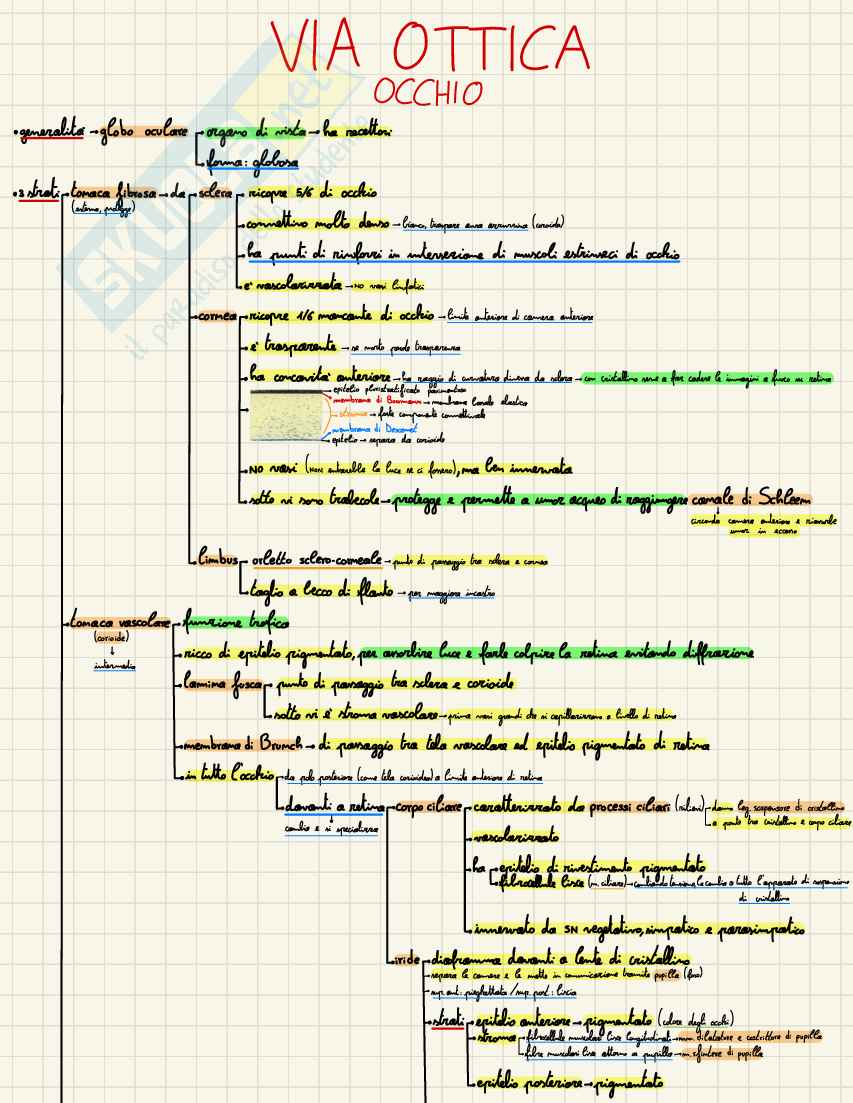 VIA OTTICA
OCCHIO
• generalità → globo oculare
organo di vista → ha recettori
forma: globosa
• 3 strati
tonaca fibrosa → da
(esterna, protegge)
sclera
ricopre 5/6 di occhio
connettivo molto denso → bianco, traspare area azzurrina (coroide)
ha punti di rinforzi in intersezione di muscoli estrinseci di occhio
è vascolarizzata → NO vasi linfatici
cornea
ricopre 1/6 mancante di occhio → limite anteriore di camera anteriore
è trasparente → se morto perde trasparenza
ha concavità anteriore → ha raggio di curvatura diversa da sclera → con cristallino serve a far cadere le immagini a fuoco su retina
epitelio pluristratificato pavimentoso
membrana di Bowmann → membrana basale elastica
stroma → forte componente connettivale
membrana di Descemet
epitelio → separa da coroide
NO vasi (non entrerebbe la luce se ci fossero), ma ben innervata
sotto vi sono trabecole → protegge e permette a umor acqueo di raggiungere canale di Schleem
circonda camera anteriore e riassorbe
umor in eccesso
limbus
orletto sclero-corneale → punto di passaggio tra sclera e cornea
taglio a becco di flauto → per maggiore incastro
tonaca vascolare
(coroide)
↓
intermedia
funzione trofica
ricco di epitelio pigmentato, per assorbire luce e farle colpire la retina evitando diffrazione
lamina fusca
punto di passaggio tra sclera e coroide
sotto vi è stroma vascolare → prima vasi grandi che si capillarizzano a livello di retina
membrana di Brunch → di passaggio tra tela vascolare ed epitelio pigmentato di retina
in tutto l'occhio
da polo posteriore (come tela coroidea) a limite anteriore di retina
davanti a retina
↓
cambia e si specializza
corpo ciliare
caratterizzato da processi ciliari (rilievi)
danno leg. sospensore di cristallino
a ponte tra cristallino e corpo ciliare
vascolarizzato
ha
epitelio di rivestimento pigmentato
fibrocellule lisce (m. ciliare) → cambiando tensione, la cambia a tutto l'apparato di sospensione
di cristallino
innervato da SN vegetativo, simpatico e parasimpatico
iride
diaframma davanti a lente di cristallino
separa le camere e le mette in comunicazione tramite pupilla (foro)
sup. ant: pieghettata / sup. post: liscia
strati
epitelio anteriore → pigmentato (colore degli occhi)
stroma
fibrocellule muscolari lisce longitudinali → mm. dilatatore e costrittore di pupilla
fibre muscolari lisce attorno a pupilla → m. sfintere di pupilla
epitelio posteriore → pigmentato
SKUOLA.net
il paradiso dello studente